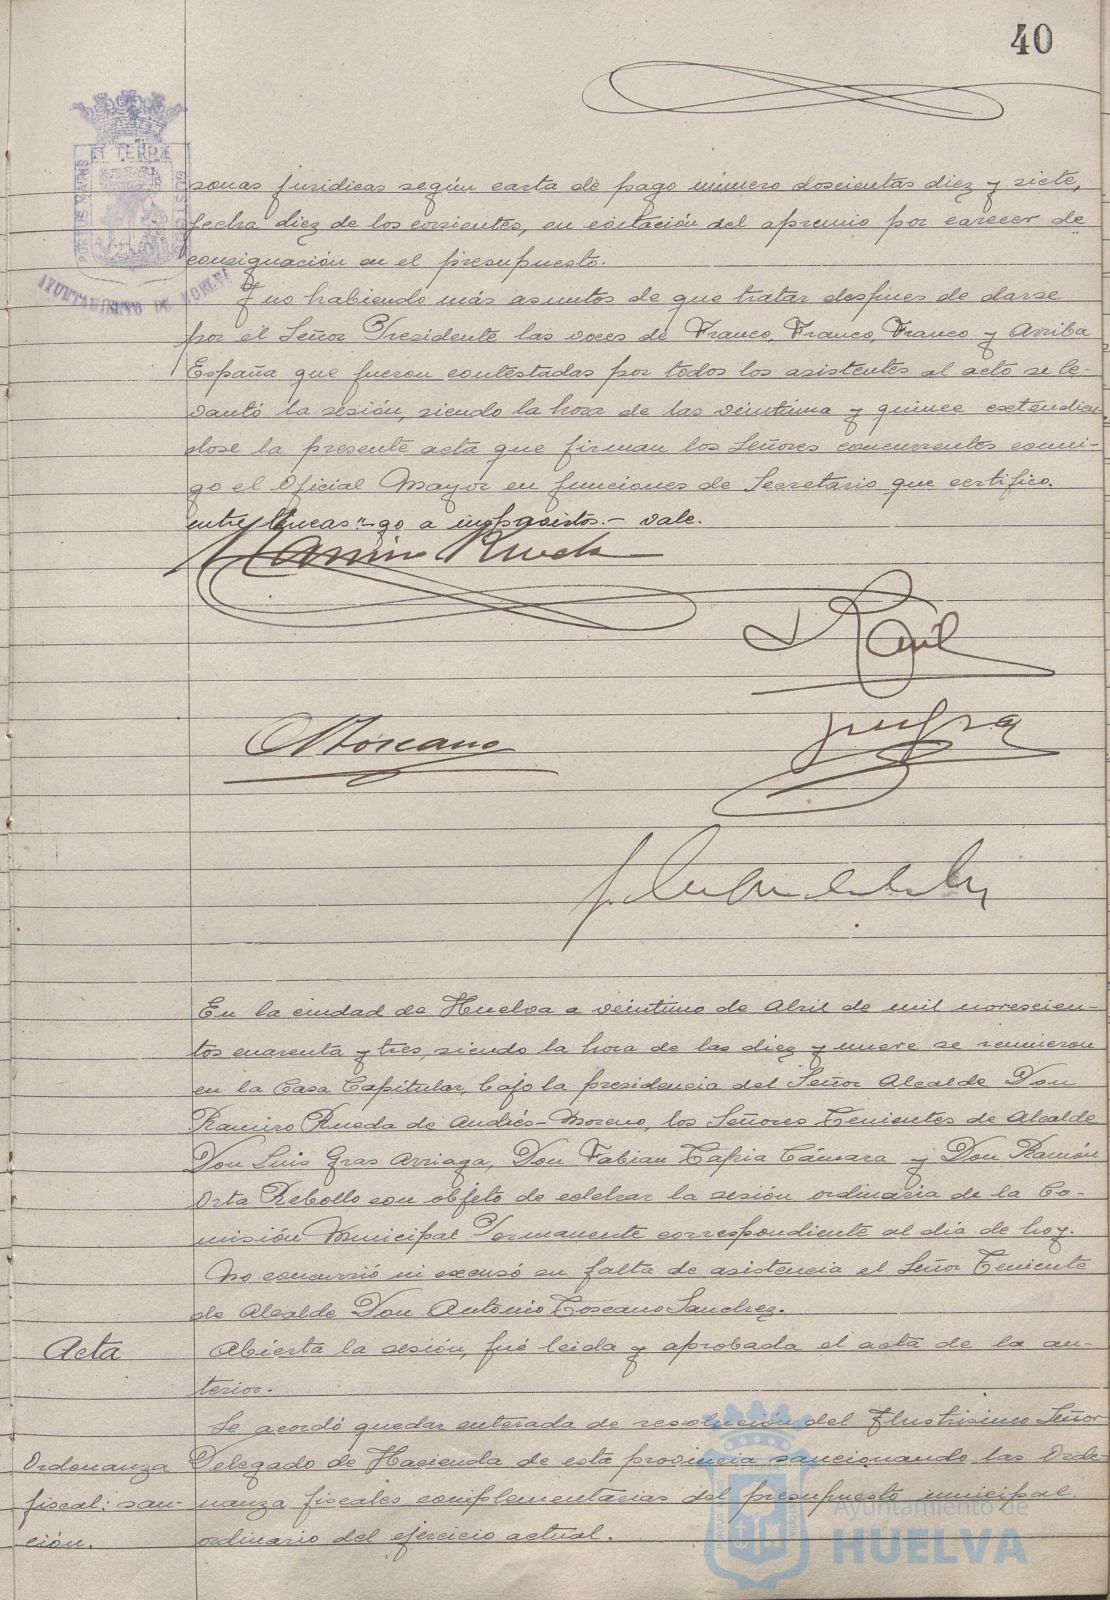 40
ET TERRÆ
PORTUS MARIS
CUSTODIA
AYUNTAMIENTO DE HUELVA
sonas juridicas según carta de pago número doscientas diez y siete,
fecha diez de los corrientes, en evitación del apremio por carecer de
consignación en el presupuesto.
Y no habiendo más asuntos de que tratar despues de darse
por el Señor Presidente las voces de Franco, Franco, Franco y Arriba
España que fueron contestadas por todos los asistentes al acto se le-
vantó la sesión, siendo la hora de las veintiuna y quince extendien-
dose la presente acta que firman los Señores concurrentes conmi-
go el Oficial Mayor en funciones de Secretario que certifico.
entre lineas = go a imprevistos.- vale.
Ramiro Rueda
A Toscano
En la ciudad de Huelva a veintiuno de Abril de mil novescien-
tos cuarenta y tres, siendo la hora de las diez y nueve se reunieron
en la Casa Capitular, bajo la presidencia del Señor Alcalde Don
Ramiro Rueda de Andrés-Moreno, los Señores Tenientes de Alcalde
Don Luis Gras Arriaga, Don Fabian Tapia Cámara y Don Ramón
Orta Rebollo con objeto de celebrar la sesión ordinaria de la Co-
misión Municipal Permanente correspondiente al dia de hoy.
No concurrió ni excusó su falta de asistencia el Señor Teniente
de Alcalde Don Antonio Toscano Sanchez.
Acta
Abierta la sesión, fué leida y aprobada el acta de la an-
terior.
Se acordó quedar enterada de resolución del Ilustrisimo Señor
Ordenanza
Delegado de Hacienda de esta provincia sancionando las Orde-
fiscal: san-
nanza fiscales complementarias del presupuesto municipal
ción.
ordinario del ejercicio actual.
Ayuntamiento de
HUELVA